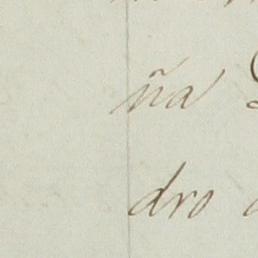 ña
dro